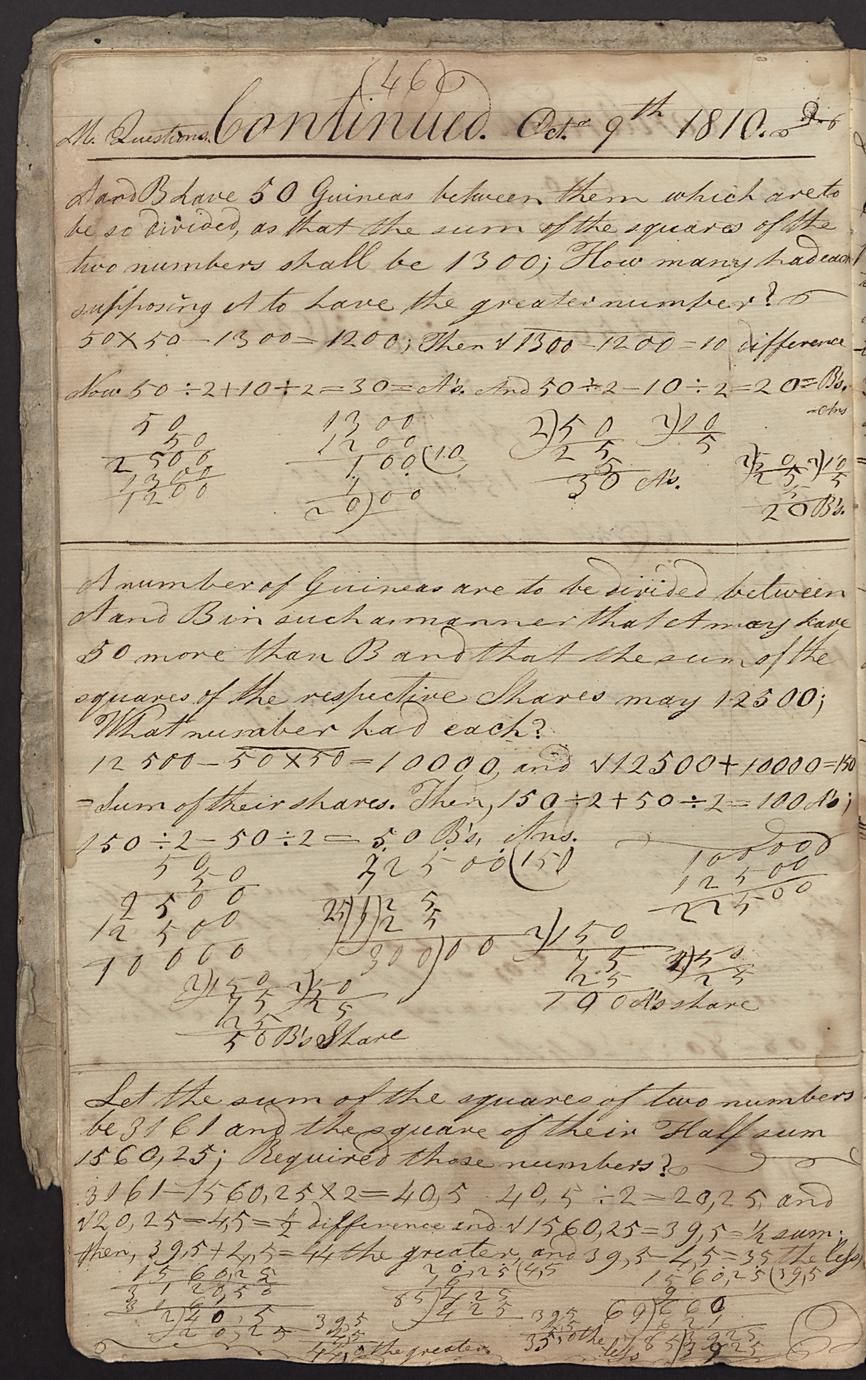 (46)
M. Questions. Continued. Oct.r 9th 1810.
A and B have 50 Guineas between them which are to
be so divided, as that the sum of the squares of the
two numbers shall be 1300; How many had each
supposing A to have the greater number?
50×50-1300=1200; Then √1300-1200=10 difference
Now 50÷2+10÷2=30=A's. And 50÷2-10÷2=20=B's.
Ans
50
50
2500
1300
1200
1300
1200
100(10
1
20)00
2)50
25
5
30 A's.
2)10
5
2)50 2)10
25 5
5
20 B's.
A number of Guineas are to be divided between
A and B in such a manner that A may have
50 more than B and that the sum of the
squares of the respective Shares may 12500;
What number had each?
12500-50×50=10000, and √12500+10000=150
=Sum of their shares. Then, 150÷2+50÷2=100 A's;
150÷2-50÷2=50 B's, Ans.
50
50
2500
12500
10000
22500(150
1
25)125
125
300)00
10000
12500
22500
2)150
75
25
100 A's share
2)50
25
2)150 2)50
75 25
25
50 B's Share
Let the sum of the squares of two numbers
be 3161 and the square of their Half sum
1560,25; Required those numbers?
3161-1560,25×2=40,5 40,5÷2=20,25, and
√20,25=4,5=½ difference and √1560,25=39,5=½ sum.
then, 39,5+4,5=44 the greater, and 39,5-4,5=35 the less,
1560,25
3120,50
3161
2)40,5
20,25
20,25(4,5
16
85)425
425
1560,25(39,5
9
69)660
621
785)3925
3925
39,5
4,5
44,0 the greater.
39,5
4,5
35,0 the less